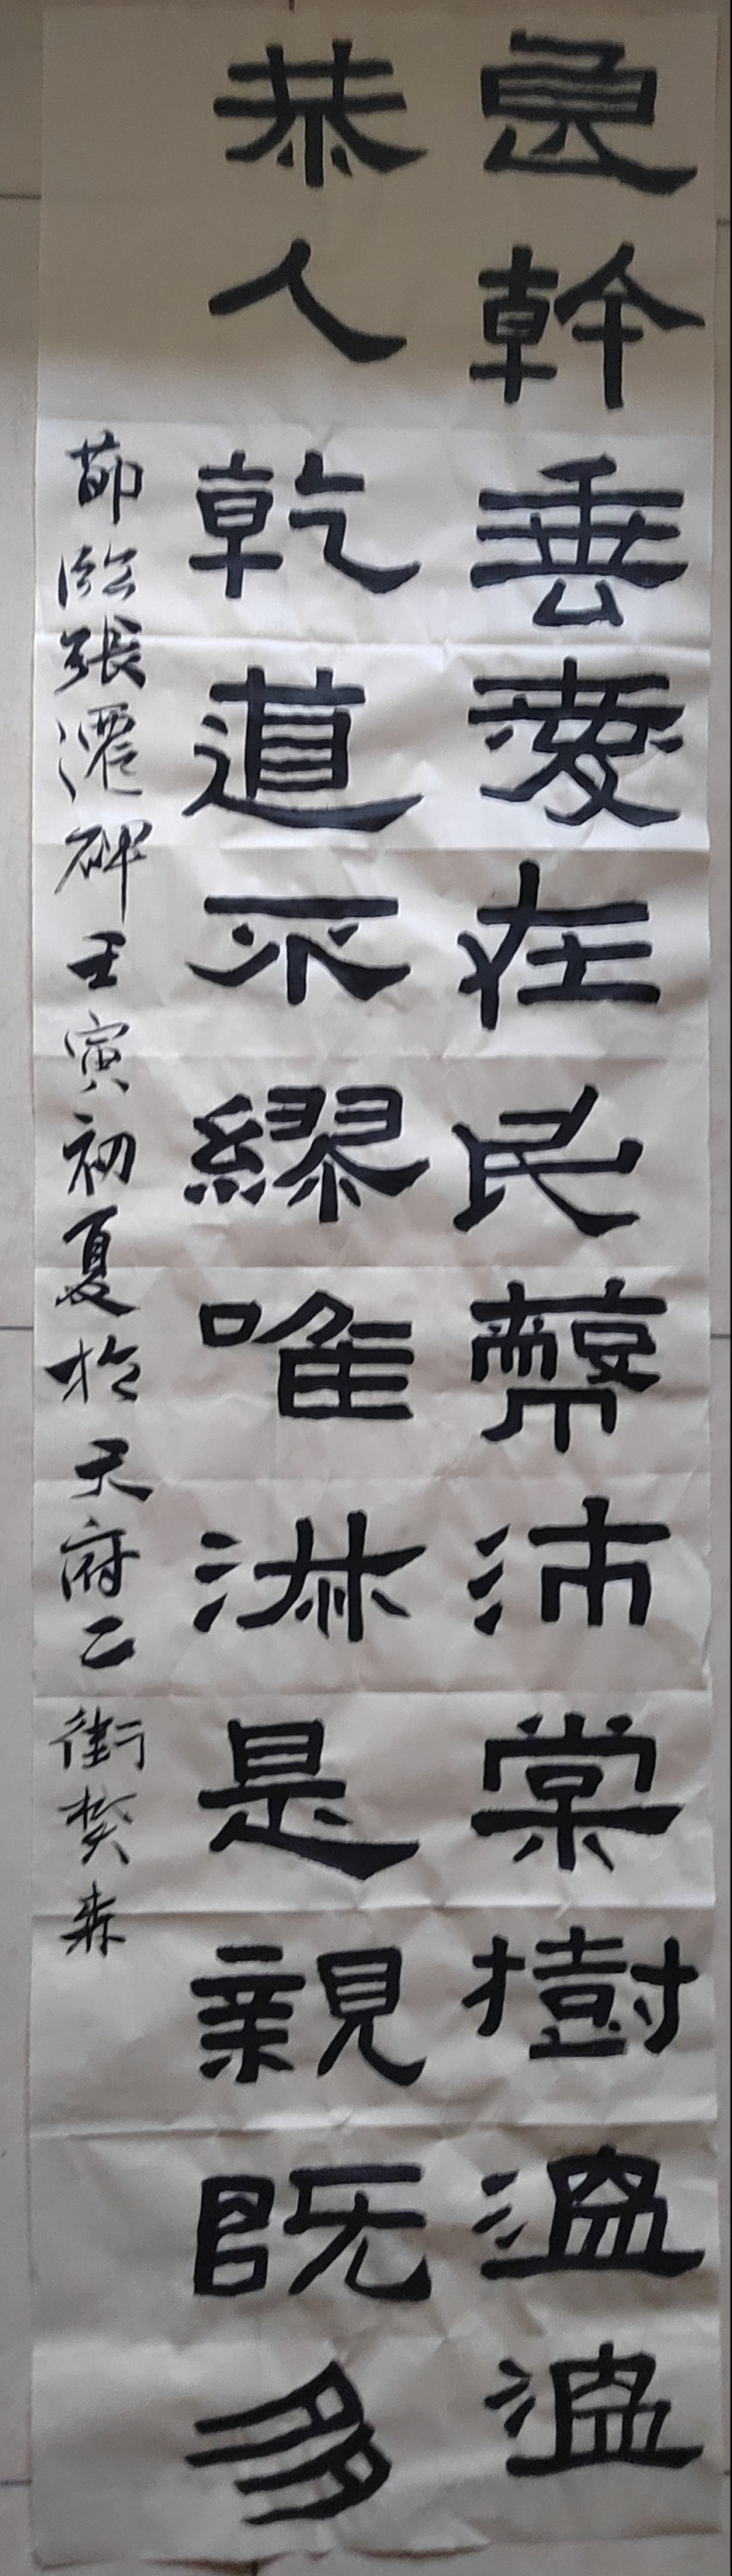 良幹垂愛在民蔽沛棠樹溫溫
恭人乾道不繆唯淑是親既多
節臨張遷碑壬寅初夏於天府二街樊森